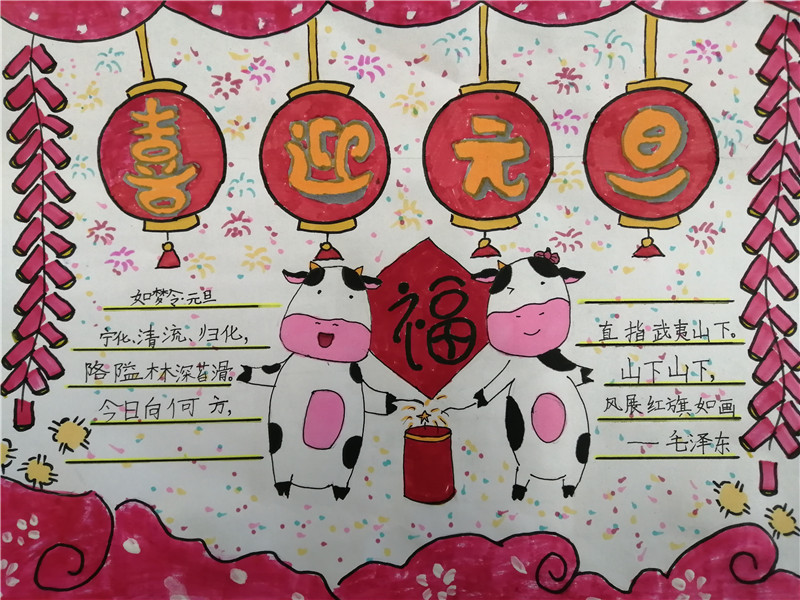 喜迎元旦
福
如梦令·元旦
宁化、清流、归化,
路隘林深苔滑。
今日向何方,
直指武夷山下。
山下山下,
风展红旗如画
——毛泽东